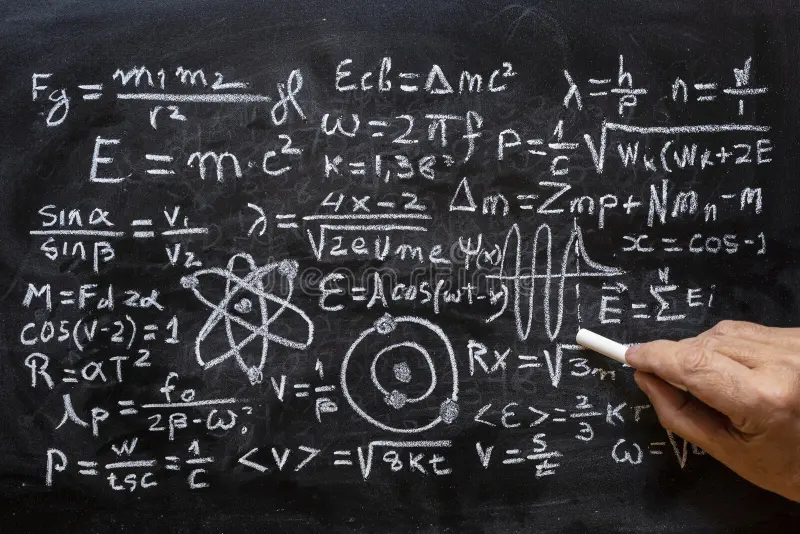 Fg = m1 m2 / r2
Ecb = Δmc²
λ = h / p
n = W / 1
E = m·c²
ω = 2πf
κ = 1,38²
P = 1/c √Wk(Wk+2E
sinα / sinβ = V1 / V2
λ = 4x-2 / √2eUme
Δm = Zmp + Nmn - M
Ψ(x)
x = cos-1
M = Fd2α
ε = A cos(ωt-x)
E = Σ Ei
cos(v-2) = 1
R = αT²
Rx = √3m
λp = fo / 2β-ω²
V = 1 / β
<ε> = 2/3 Kr
P = W / tsc = 1 / c
<v> = √8kt
V = S / t
ω = √